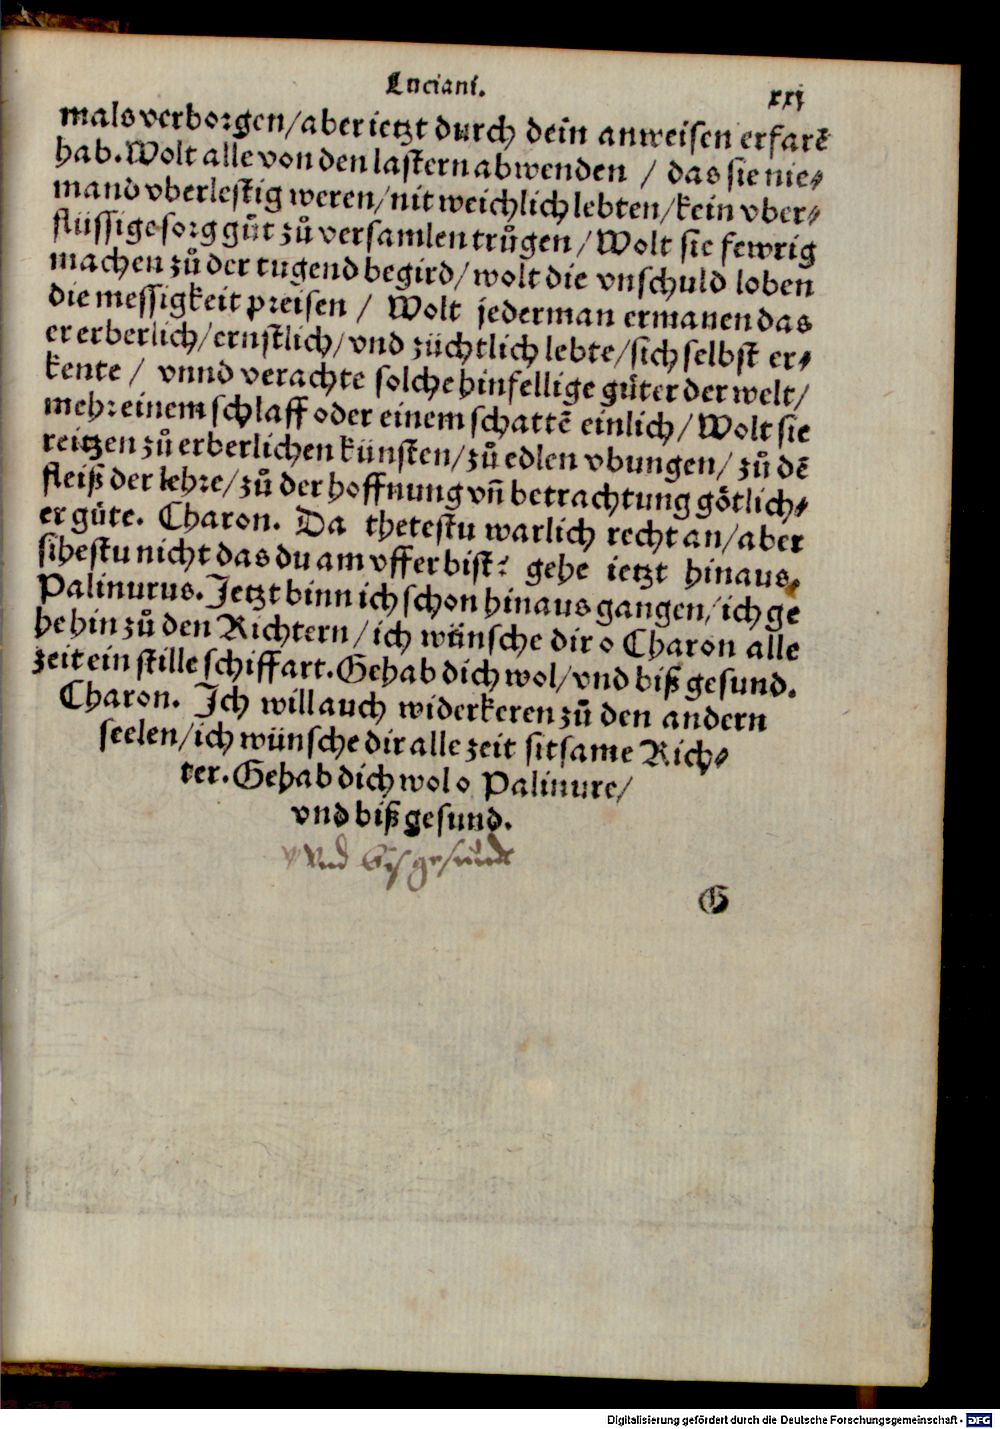 Luciani.
xxj
mals verborgen/aber ietzt durch dein anweisen erfarẽ
hab. Wolt alle von den lastern abwenden / das sie nie⸗
mand vberlestig weren/nit weichlich lebten/kein vber⸗
flüssige sorg gůt zů versamlen trůgen/Wolt sie fewrig
machen zů der tugend begird/wolt die vnschuld loben
die messigkeit preisen / Wolt jederman ermanen das
er erberlich/ernstlich/vnd züchtlich lebte/sich selbst er⸗
kente / vnnd verachte solche hinfellige güter der welt/
mehr einem schlaff oder einem schattẽ einlich/Wolt sie
reitzen zů erberlichen künsten/zů edlen vbungen/zů dẽ
fleiß der lehre/zů der hoffnung vñ betrachtung götlich⸗
er güte. Charon. Da thetestu warlich recht an/aber
sihestu nicht das du am vffer bist? gehe ietzt hinaus.
Palinurus. Jetzt binn ich schon hinaus gangen/ich ge
he hin zů den Richtern/ich wünsche dir o Charon alle
zeit ein stille schiffart. Gehab dich wol/vnd biß gesund.
Charon. Ich will auch widerkeren zů den andern
seelen/ich wünsche dir alle zeit sitsame Rich⸗
ter. Gehab dich wol o Palinure/
vnd biß gesund.
Vnd bis gesund
G
Digitalisierung gefördert durch die Deutsche Forschungsgemeinschaft - DFG